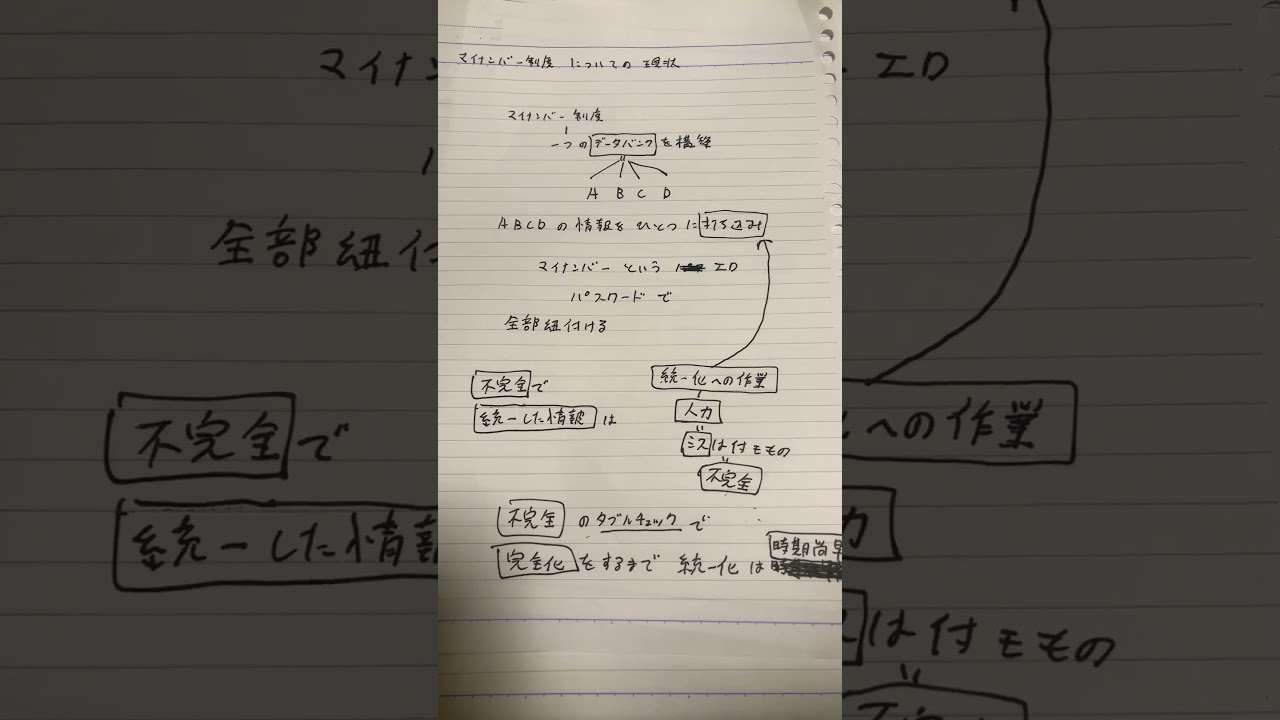 マイナンバー制度 についての 現状
マイナンバー 制度
一つの データバンク を構築
A B C D
ABCD の 情報を ひとつ に 打ち込み
マイナンバー という ID
パスワード で
全部紐付ける
不完全 で
統一した情報 は
統一化への作業
人力
ミス は付キもの
不完全
不完全 のダブルチェック で
完全化 をするまで 統一化 は 時期尚早